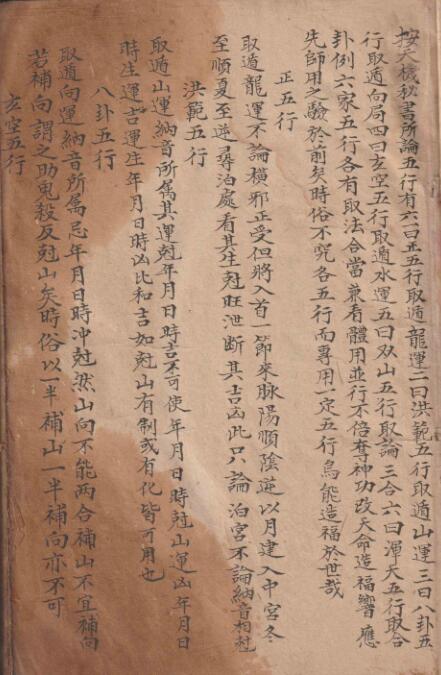 按天機秘書所論五行有六曰正五行取遁龍運二曰洪範五行取遁山運三曰八卦五
行取遁向局四曰玄空五行取遁水運五曰双山五行取論三合六曰渾天五行取合
卦例六家五行各有取法合當兼看體用並行不俻奪神功改天命造福響應
先師用之驗於前矣時俗不究各五行而專用一定五行烏能造福於世哉
正五行
取遁龍運不論橫邪正受但將入首一節來脉陽順陰逆以月建入中宮冬
至順夏至逆尋泊處看其生尅旺泄断其吉凶此只論泊宮不論納音相尅
洪範五行
取遁山運納音所属其運尅年月日時吉不可使年月日時尅山運凶年月日
時生運吉運生年月日時凶比和吉如尅山有制或有化皆可用也
八卦五行
取遁向運納音所属忌年月日時冲尅然山向不能两合補山不宜補向
若補向謂之助鬼殺反尅山矣時俗以一半補山一半補向亦不可
玄空五行